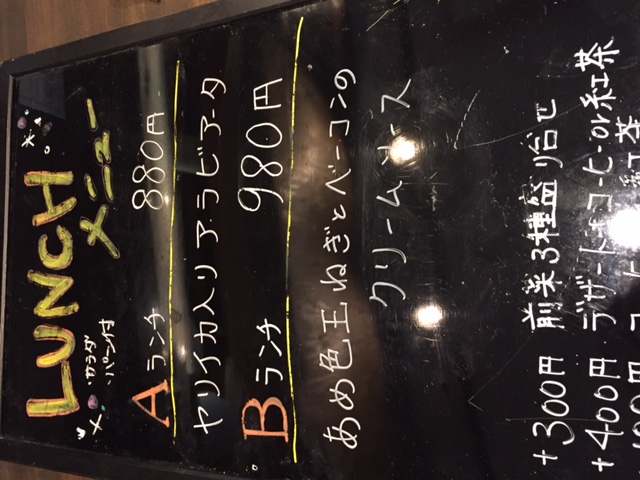 LUNCH
メニュー
・サラダ
・パン付
Aランチ 880円
ヤリイカ入り アラビアータ
Bランチ 980円
あめ色玉ねぎとベーコンの
クリームソース
+300円 前菜3種盛り合せ
+400円 デザート&コーヒーor紅茶